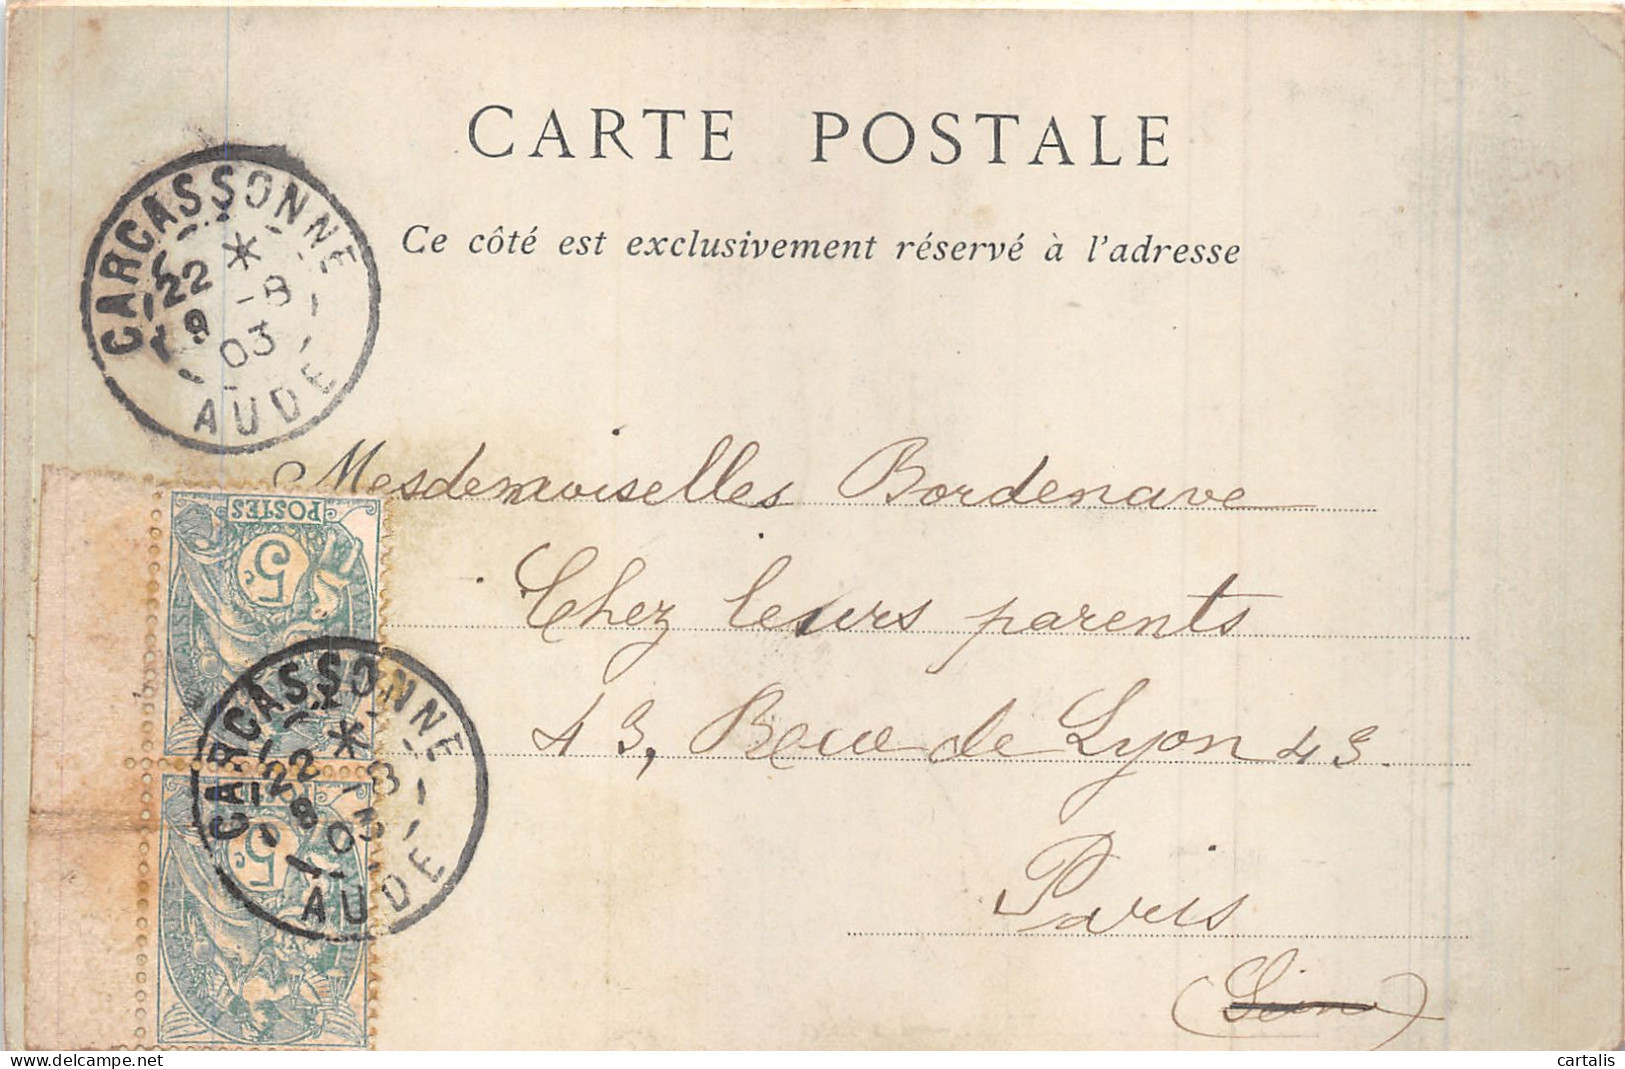 CARTE POSTALE
Ce côté est exclusivement réservé à l'adresse
CARCASSONNE
22 * -8
03
AUDE
Mesdemoiselles Bordenave
Chez leurs parents
43, Rue de Lyon 43.
Paris
POSTES
5c
CARCASSONNE
22 * -8
03
AUDE
5c
delcampe.net
cartalis